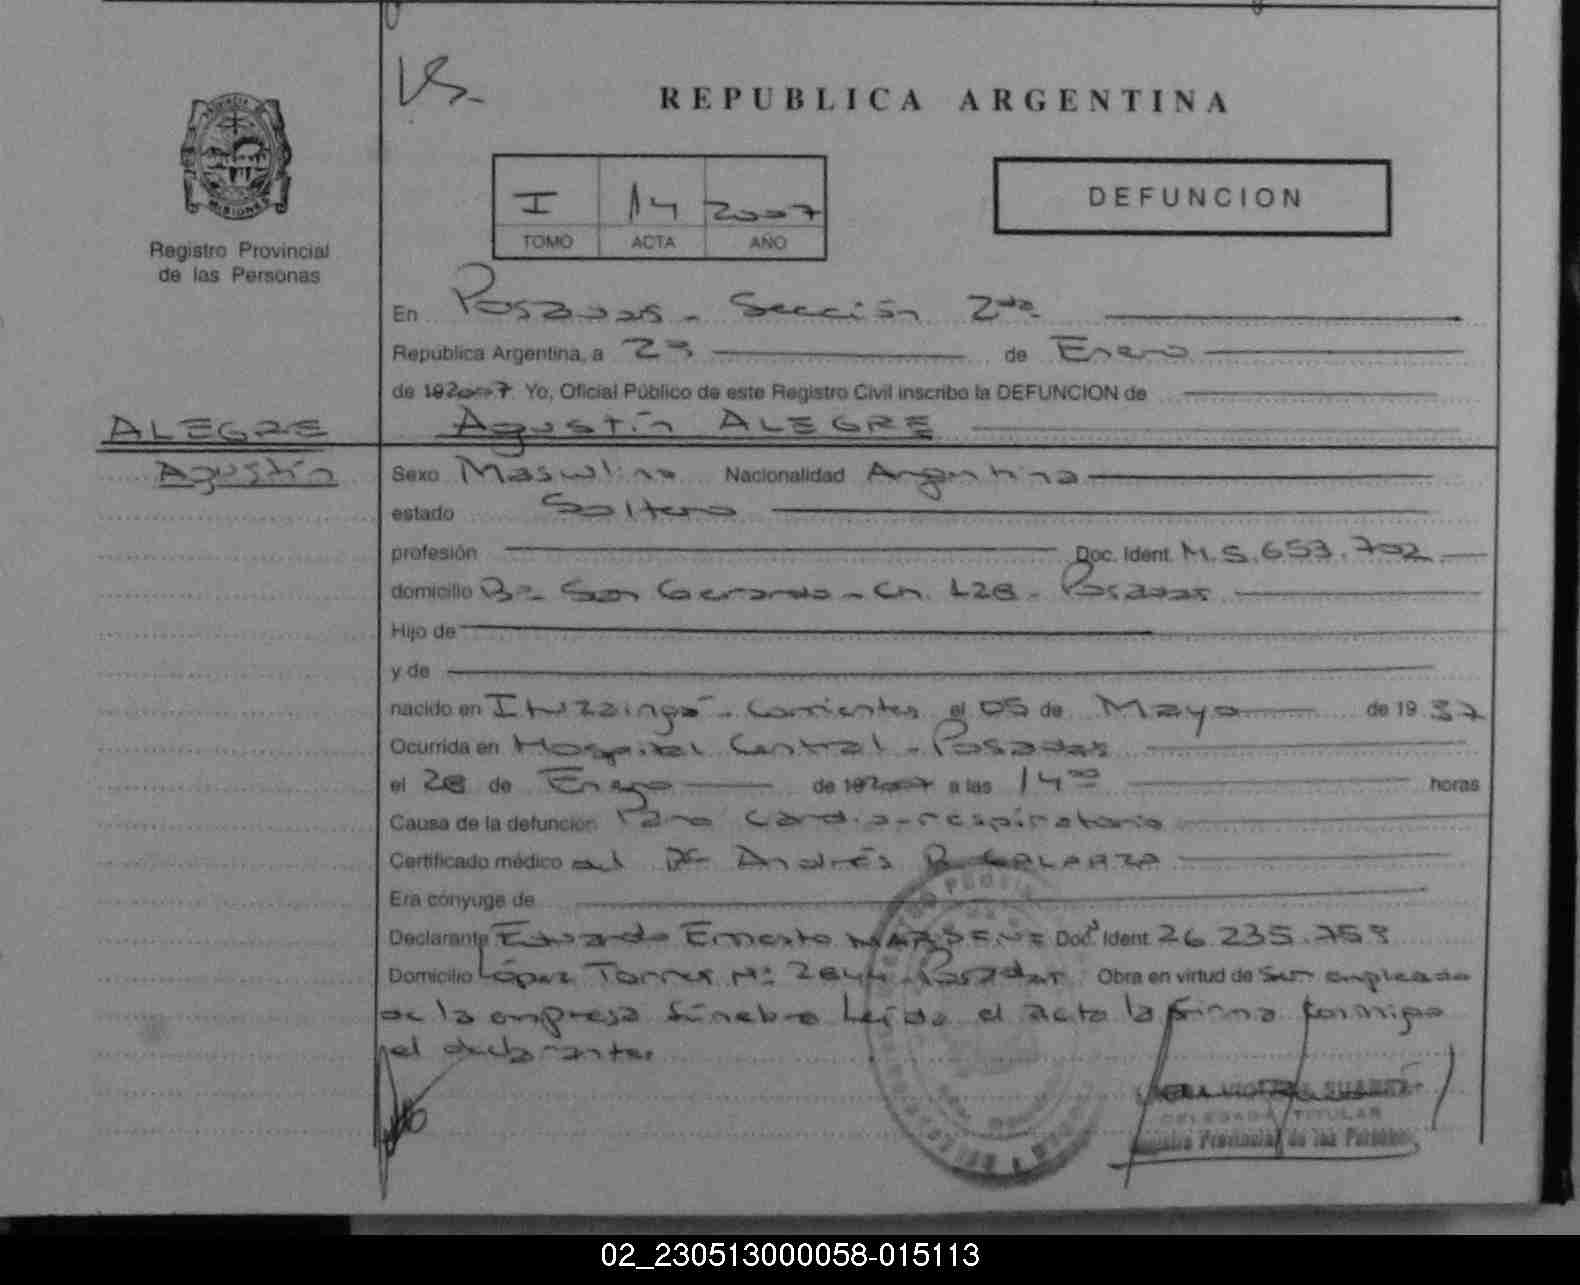 REPUBLICA ARGENTINA
MISIONES
Registro Provincial
de las Personas
I 14 2007
TOMO ACTA AÑO
DEFUNCION
En Posadas - Sección 2da
República Argentina, a 29 de Enero
de 192007 Yo, Oficial Público de este Registro Civil inscribo la DEFUNCION de
ALEGRE
Agustín
Agustín ALEGRE
Sexo Masculino Nacionalidad Argentina
estado Soltero
profesión Doc. Ident. M.5.653.702
domicilio Bº San Gerardo - Ch. 128 - Posadas
Hijo de
y de
nacido en Ituzaingó - Corrientes el 05 de Mayo de 19 37
Ocurrida en Hospital Central - Posadas
el 28 de Enero de 192007 a las 14 00 horas
Causa de la defunción Paro cardio-respiratorio
Certificado médico del Dr Andrés GALARZA
Era cónyuge de
Declarante Eduardo Ernesto Doc. Ident. 26.235.759
Domicilio López Torres Nº 2844 - Posadas Obra en virtud de Ser empleado
de la empresa fúnebre Leída el acta la firma conmigo
el declarante.
SUAREZ
DELEGADA TITULAR
Registro Provincial de las Personas
02_230513000058-015113